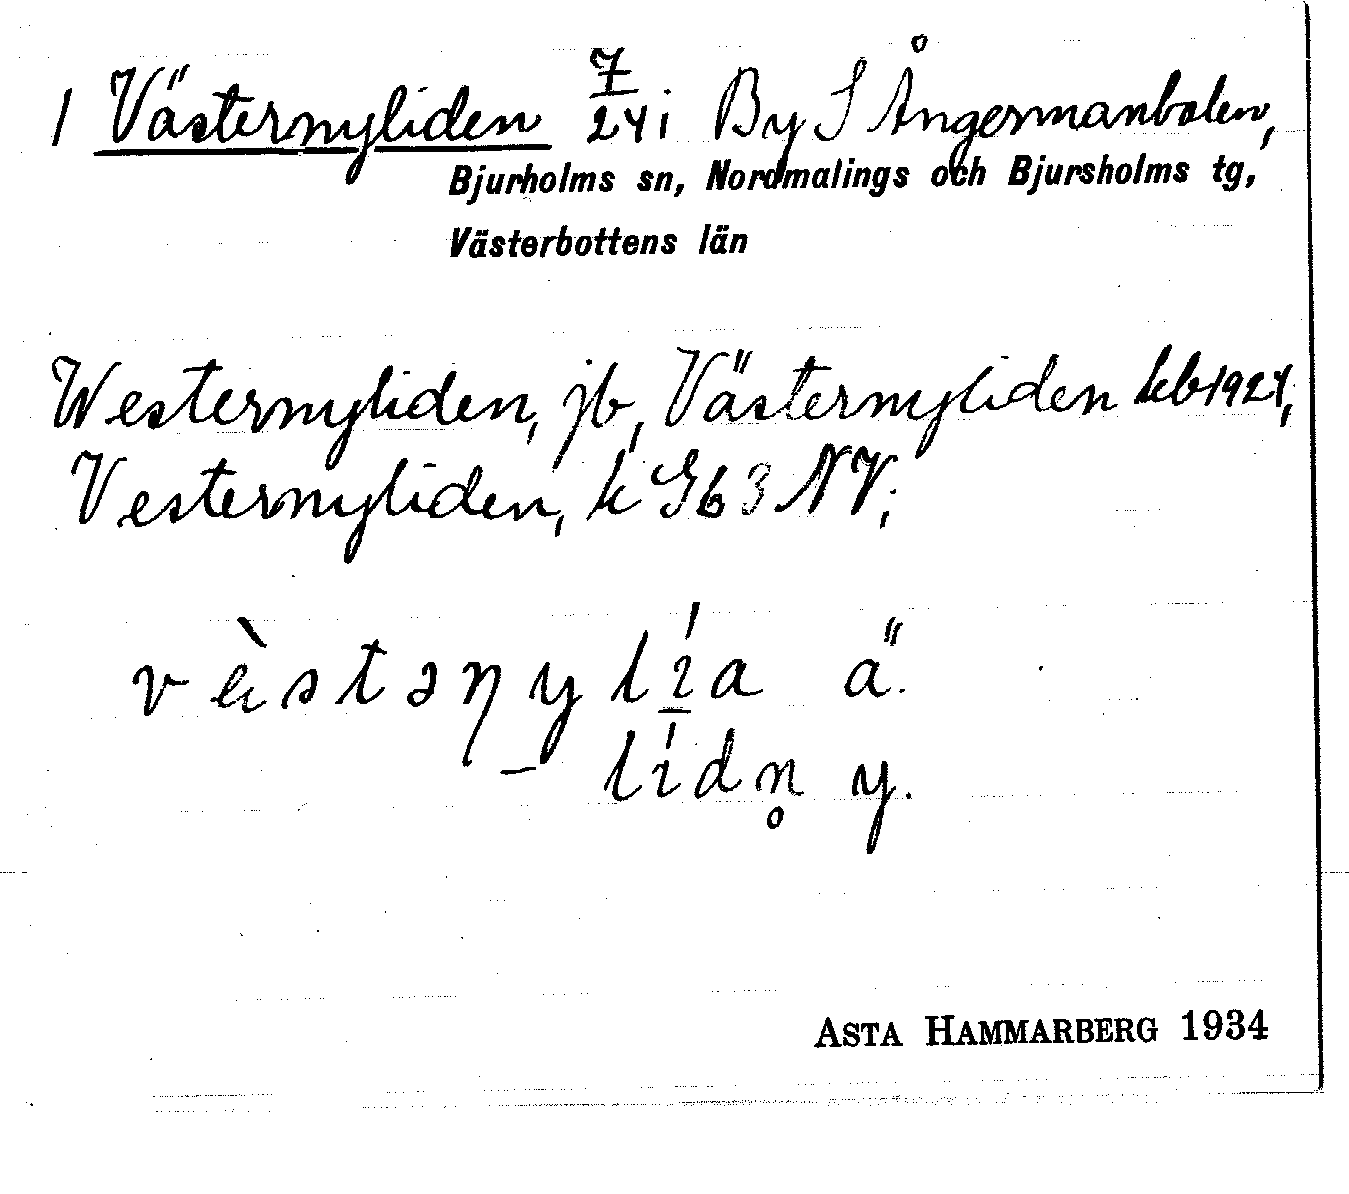 1 Västernyliden 7/24 i By S Ångermanbalen,
Bjurholms sn, Nordmalings och Bjursholms tg,
Västerbottens län
Westernyliden, jb, Västernyliden kb 1924,
Vesternyliden, k G63 NV;
vèstəηylía ä.
– lídn̥ y.
ASTA HAMMARBERG 1934